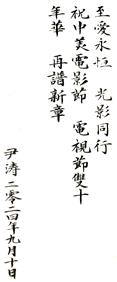 至愛永恒　光影同行
祝中美電影節　電視節雙十
年華　再譜新章
尹濤二零二四年九月十日